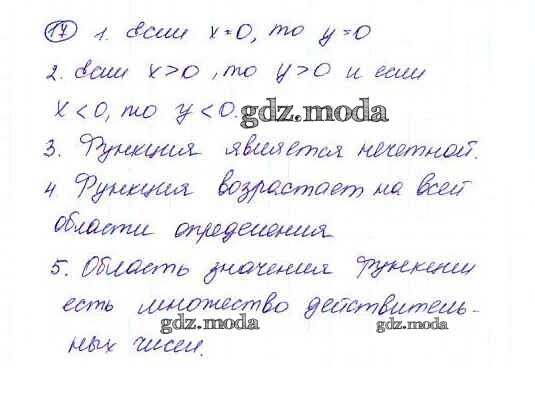 17 1. Если x=0, то y=0
2. Если x>0, то y>0 и если
x<0, то y<0. gdz.moda
3. Функция является нечетной.
4. Функция возрастает на всей
области определения
5. Область значения функции
есть множество действитель-
gdz.moda gdz.moda
ных чисел.